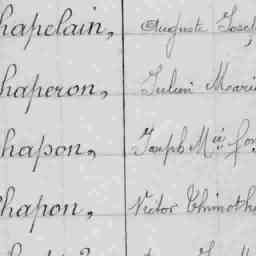 hapelain, Auguste Jose
haperon, Julien Marie
hapon, Joseph Mie
Chapon, Victor Thimoth